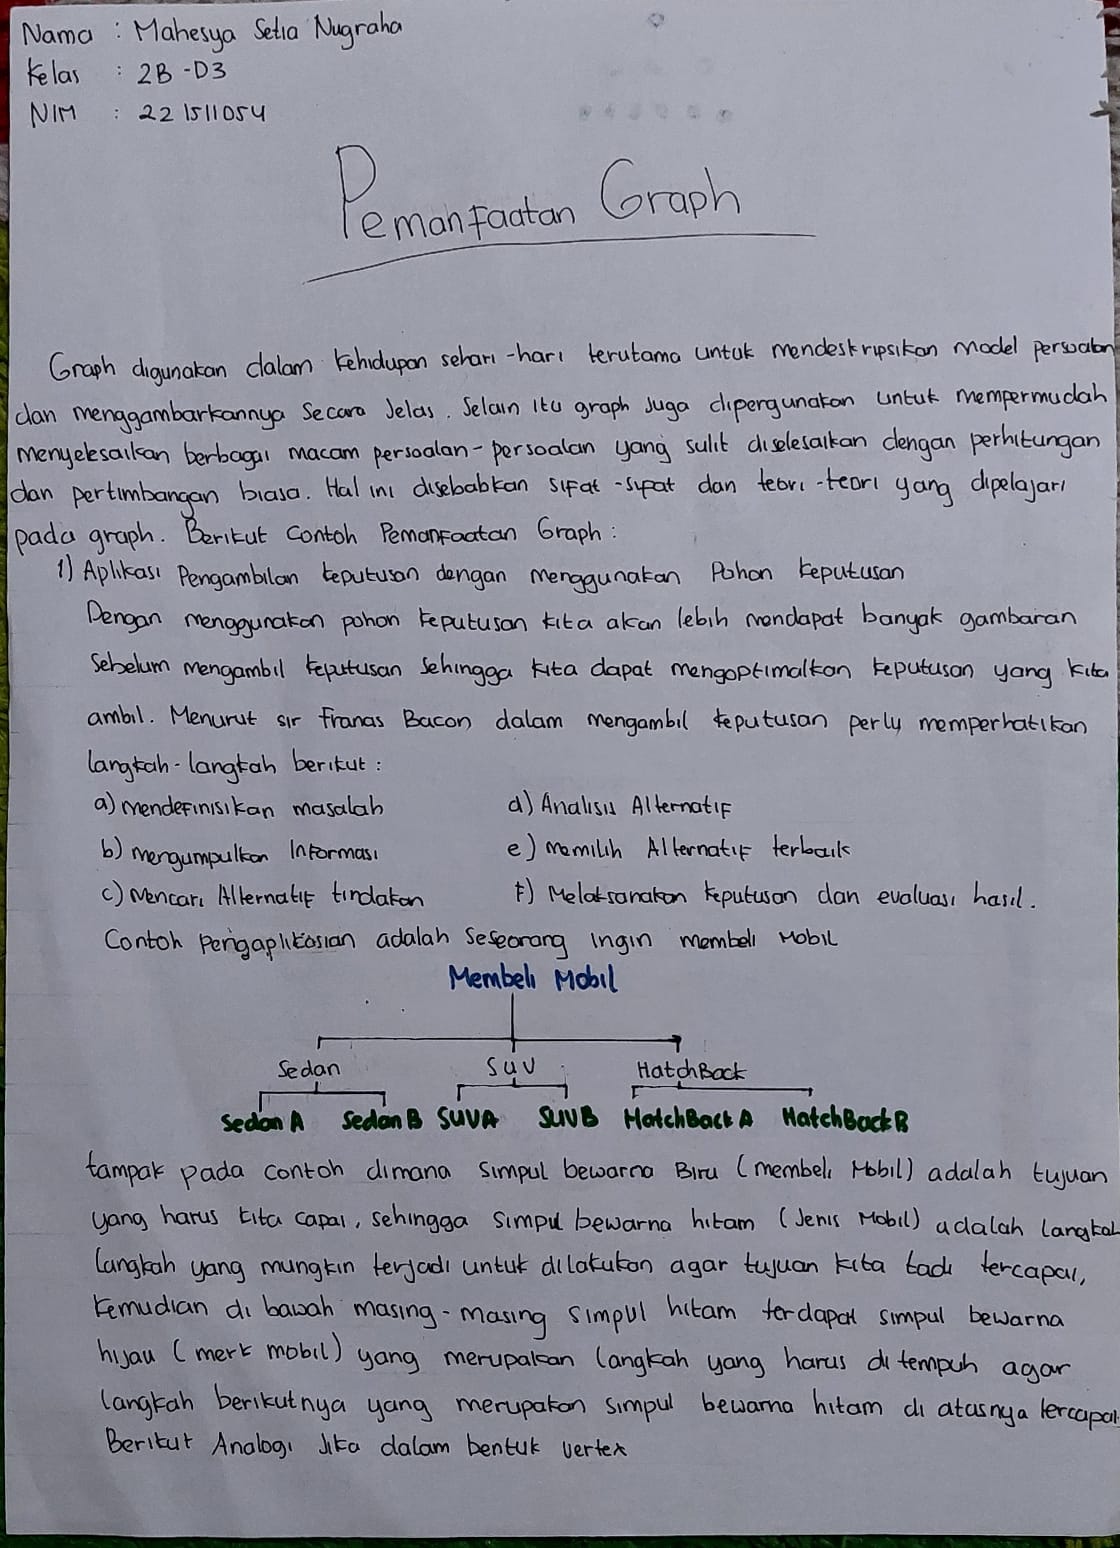 Nama : Mahesya Setia Nugraha
Kelas : 2B -D3
NIM : 221511054
Pemanfaatan Graph
Graph digunakan dalam kehidupan sehari-hari terutama untuk mendeskripsikan model persoalan
dan menggambarkannya secara Jelas. Selain itu graph Juga dipergunakan untuk mempermudah
menyelesaikan berbagai macam persoalan-persoalan yang sulit diselesaikan dengan perhitungan
dan pertimbangan biasa. Hal ini disebabkan sifat-sifat dan teori-teori yang dipelajari
pada graph. Berikut Contoh Pemanfaatan Graph :
1) Aplikasi Pengambilan keputusan dengan menggunakan Pohon keputusan
Dengan menggunakan pohon keputusan kita akan lebih mendapat banyak gambaran
Sebelum mengambil keputusan sehingga kita dapat mengoptimalkan keputusan yang kita
ambil. Menurut sir Franas Bacon, dalam mengambil keputusan perlu memperhatikan
langkah-langkah berikut :
a) mendefinisikan masalah
d) Analisis Alternatif
b) mengumpulkan Informasi
e) memilih Alternatif terbaik
c) Mencari Alternatif tindakan
f) Melaksanakan keputusan dan evaluasi hasil.
Contoh pengaplikasian adalah Seseorang ingin membeli Mobil
Membeli Mobil
Sedan SUV HatchBack
Sedan A Sedan B SUV A SUV B HatchBack A HatchBack B
tampak pada contoh dimana simpul bewarna Biru (membeli Mobil) adalah tujuan
yang harus kita capai, sehingga simpul bewarna hitam (Jenis Mobil) adalah langkah
langkah yang mungkin terjadi untuk dilakukan agar tujuan kita tadi tercapai,
kemudian di bawah masing-masing simpul hitam terdapat simpul bewarna
hijau (merk mobil) yang merupakan langkah yang harus di tempuh agar
langkah berikutnya yang merupakan simpul bewarna hitam di atasnya tercapai.
Berikut Analogi Jika dalam bentuk vertex